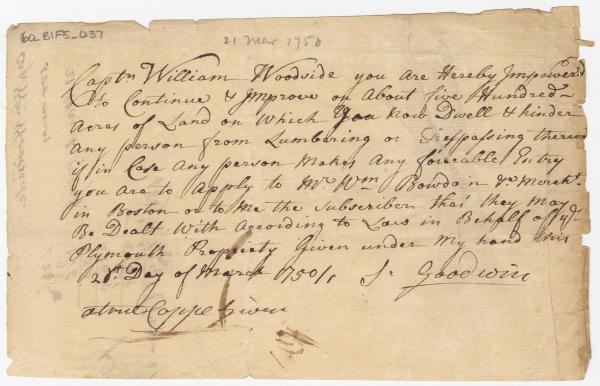 160_B1F5_037
21 Mar 1750
Captn William Woodside you are Hereby Impower'd
to Continue & Improve on About five Hundred
Acres of Land on Which You Now Dwell & hinder
Any person from Lumbering or Trespassing thereon
& in Case Any person Makes Any forceable Entry
you are to Apply to Mr. Wm Bowdoin Mercht.
in Boston or to Me the Subscriber that they May
Be Dealt With According to Law in Behalf of ye
Plymouth Propriety Given under My hand this
21st. Day of March 1750/1 S. Goodwin
a true Coppe Given